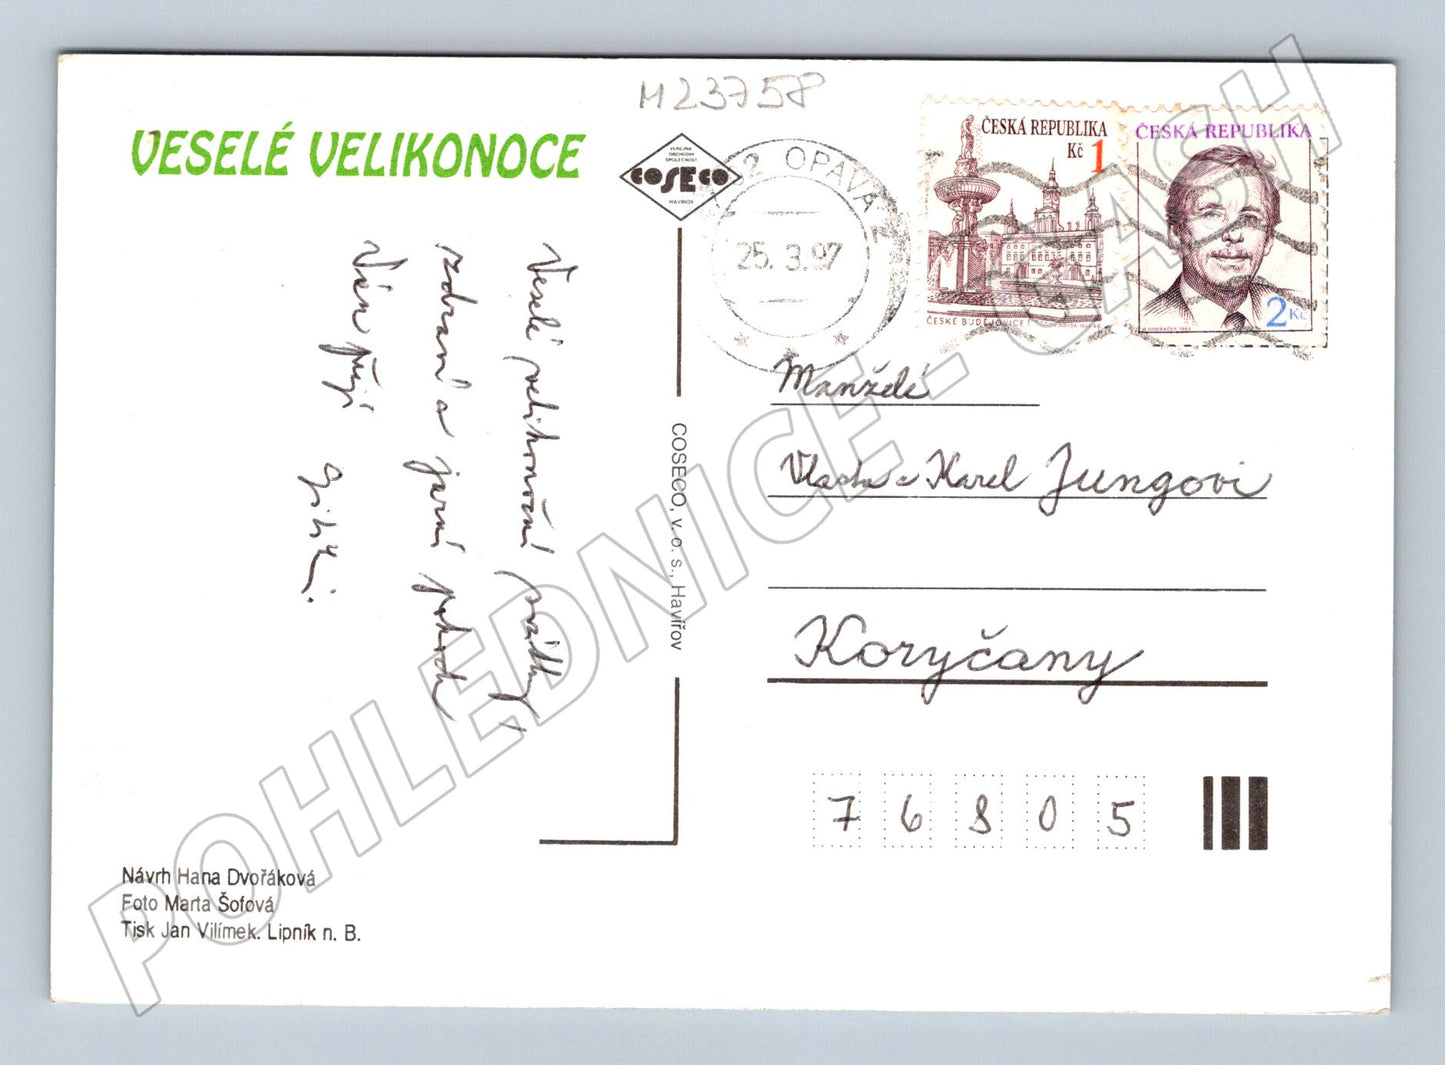 M23758
VESELÉ VELIKONOCE
VEREJNÁ
OBCHODNÍ
SPOLEČNOST
COSECO
HAVÍŘOV
2 OPAVA 2
25.3.97
ČESKÁ REPUBLIKA
Kč 1
ČESKÉ BUDĚJOVICE
ČESKÁ REPUBLIKA
2 Kč
Veselé velikonoční svátky,
zdraví a jarní pohodu
Vám přejí
Jiří K.
COSECO, v. o. s., Havířov
Manželé
Vlasta a Karel Jungovi
Koryčany
76805
Návrh Hana Dvořáková
Foto Marta Šofová
Tisk Jan Vilímek. Lipník n. B.
POHLEDNICE - CASH